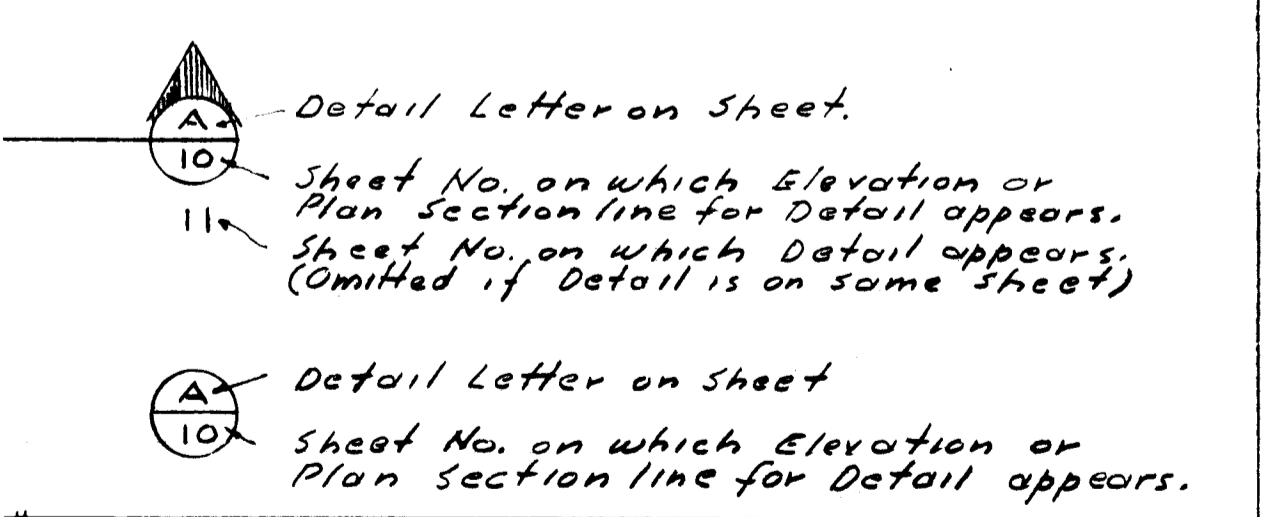 A
Detail Letter on Sheet.
10
Sheet No. on which Elevation or
Plan Section line for Detail appears.
11
Sheet No. on which Detail appears.
(Omitted if Detail is on same sheet)
A
Detail Letter on Sheet
10
Sheet No. on which Elevation or
Plan Section line for Detail appears.